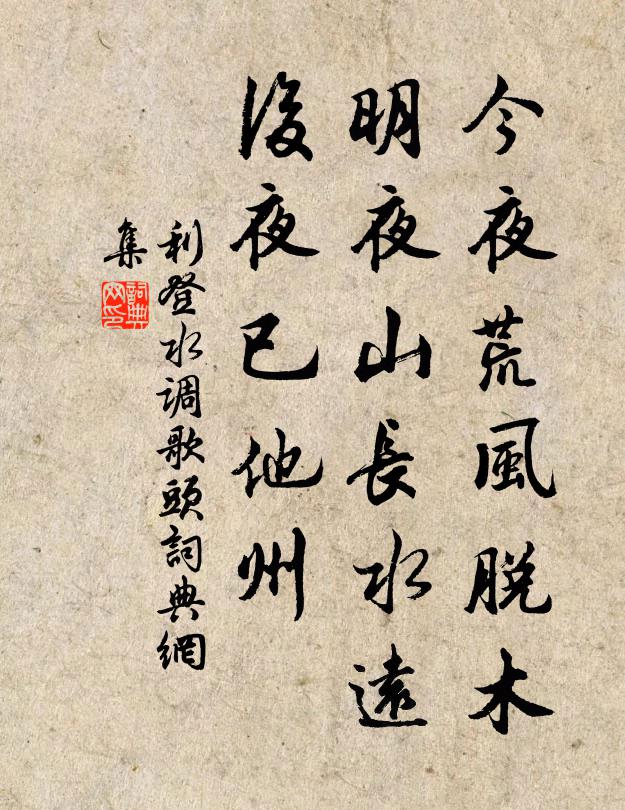 今夜荒風脱木
明夜山長水遠
後夜已他州
利登水调歌頭詞典網
集
詞典網印